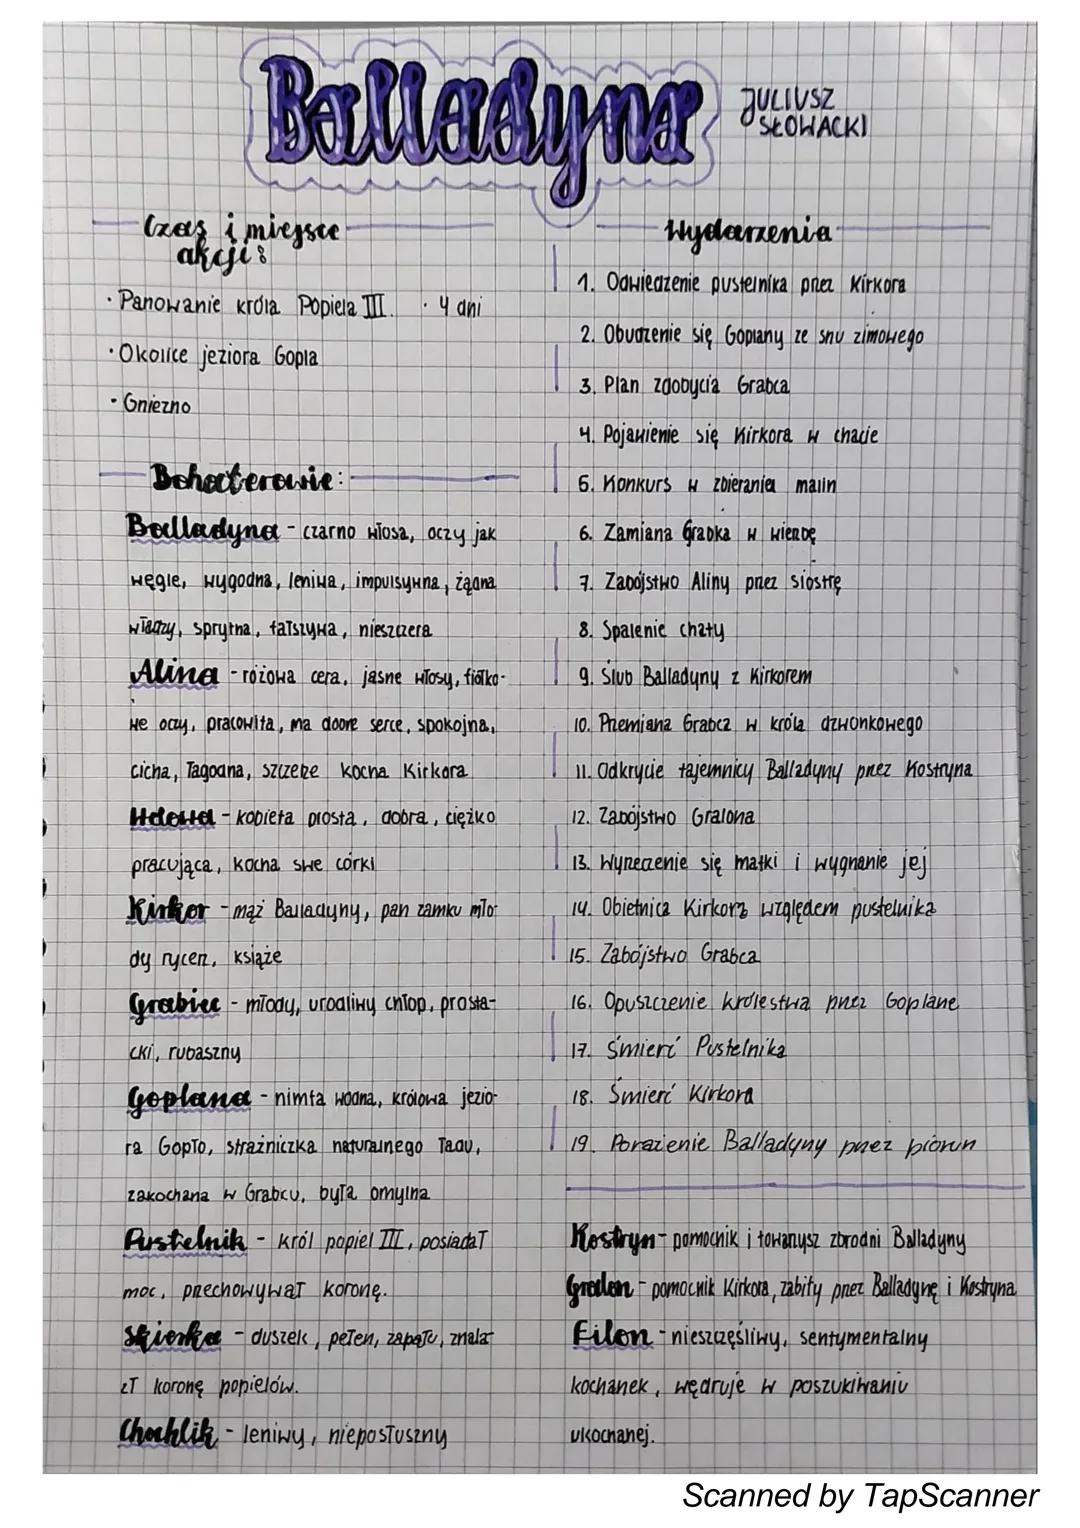 Balladyna
JULIUSZ
SŁOWACKI
Czas i miejsce
akcji:
· Panowanie króla Popiela III. · 4 dni
· Okolice jeziora Gopła
· Gniezno
Bohaterowie:
Balladyna - czarno włosa, oczy jak
węgle, wygodna, leniwa, impulsywna, żądna
władzy, sprytna, fałszywa, nieszczera
Alina - różowa cera, jasne włosy, fiołko-
we oczy, pracowita, ma dobre serce, spokojna,
cicha, łagodna, szczerze kocha Kirkora
Wdowa - kobieta prosta, dobra, ciężko
pracująca, kocha swe córki
Kirkor - mąż Balladyny, pan zamku mło-
dy rycerz, książe
Grabiec - młody, urodliwy chłop, prosta-
cki, rubaszny
Goplana - nimfa wodna, królowa jezio-
ra Gopło, strażniczka naturalnego ładu,
zakochana w Grabcu, była omylna
Pustelnik - król popiel III, posiadał
moc, przechowywał koronę.
Skierka - duszek, pełen, zapału, znala-
zł koronę popielów.
Chochlik - leniwy, nieposłuszny
Wydarzenia
1. Odwiedzenie pustelnika przez Kirkora
2. Obudzenie się Goplany ze snu zimowego
3. Plan zdobycia Grabca
4. Pojawienie się Kirkora w chacie
5. Konkurs w zbieraniu malin
6. Zamiana Grabka w wierzbę
7. Zabójstwo Aliny przez siostrę
8. Spalenie chaty
9. Ślub Balladyny z Kirkorem
10. Przemiana Grabca w króla dzwonkowego
11. Odkrycie tajemnicy Balladyny przez Kostryna
12. Zabójstwo Gralona
13. Wyrzeczenie się matki i wygnanie jej
14. Obietnica Kirkora względem pustelnika
15. Zabójstwo Grabca
16. Opuszczenie królestwa przez Goplane
17. Śmierć Pustelnika
18. Śmierć Kirkora
19. Porażenie Balladyny przez piorun
Kostryn - pomocnik i towarzysz zbrodni Balladyny
Gralon - pomocnik Kirkora, zabity przez Balladynę i Kostryna
Filon - nieszczęśliwy, sentymentalny
kochanek, wędruje w poszukiwaniu
ukochanej.
Scanned by TapScanner